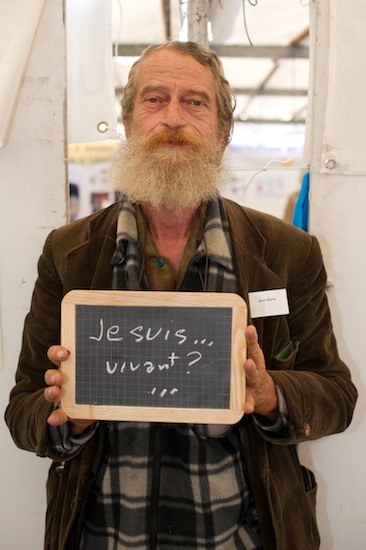 Je suis...
vivant?
...
Jean-Marie